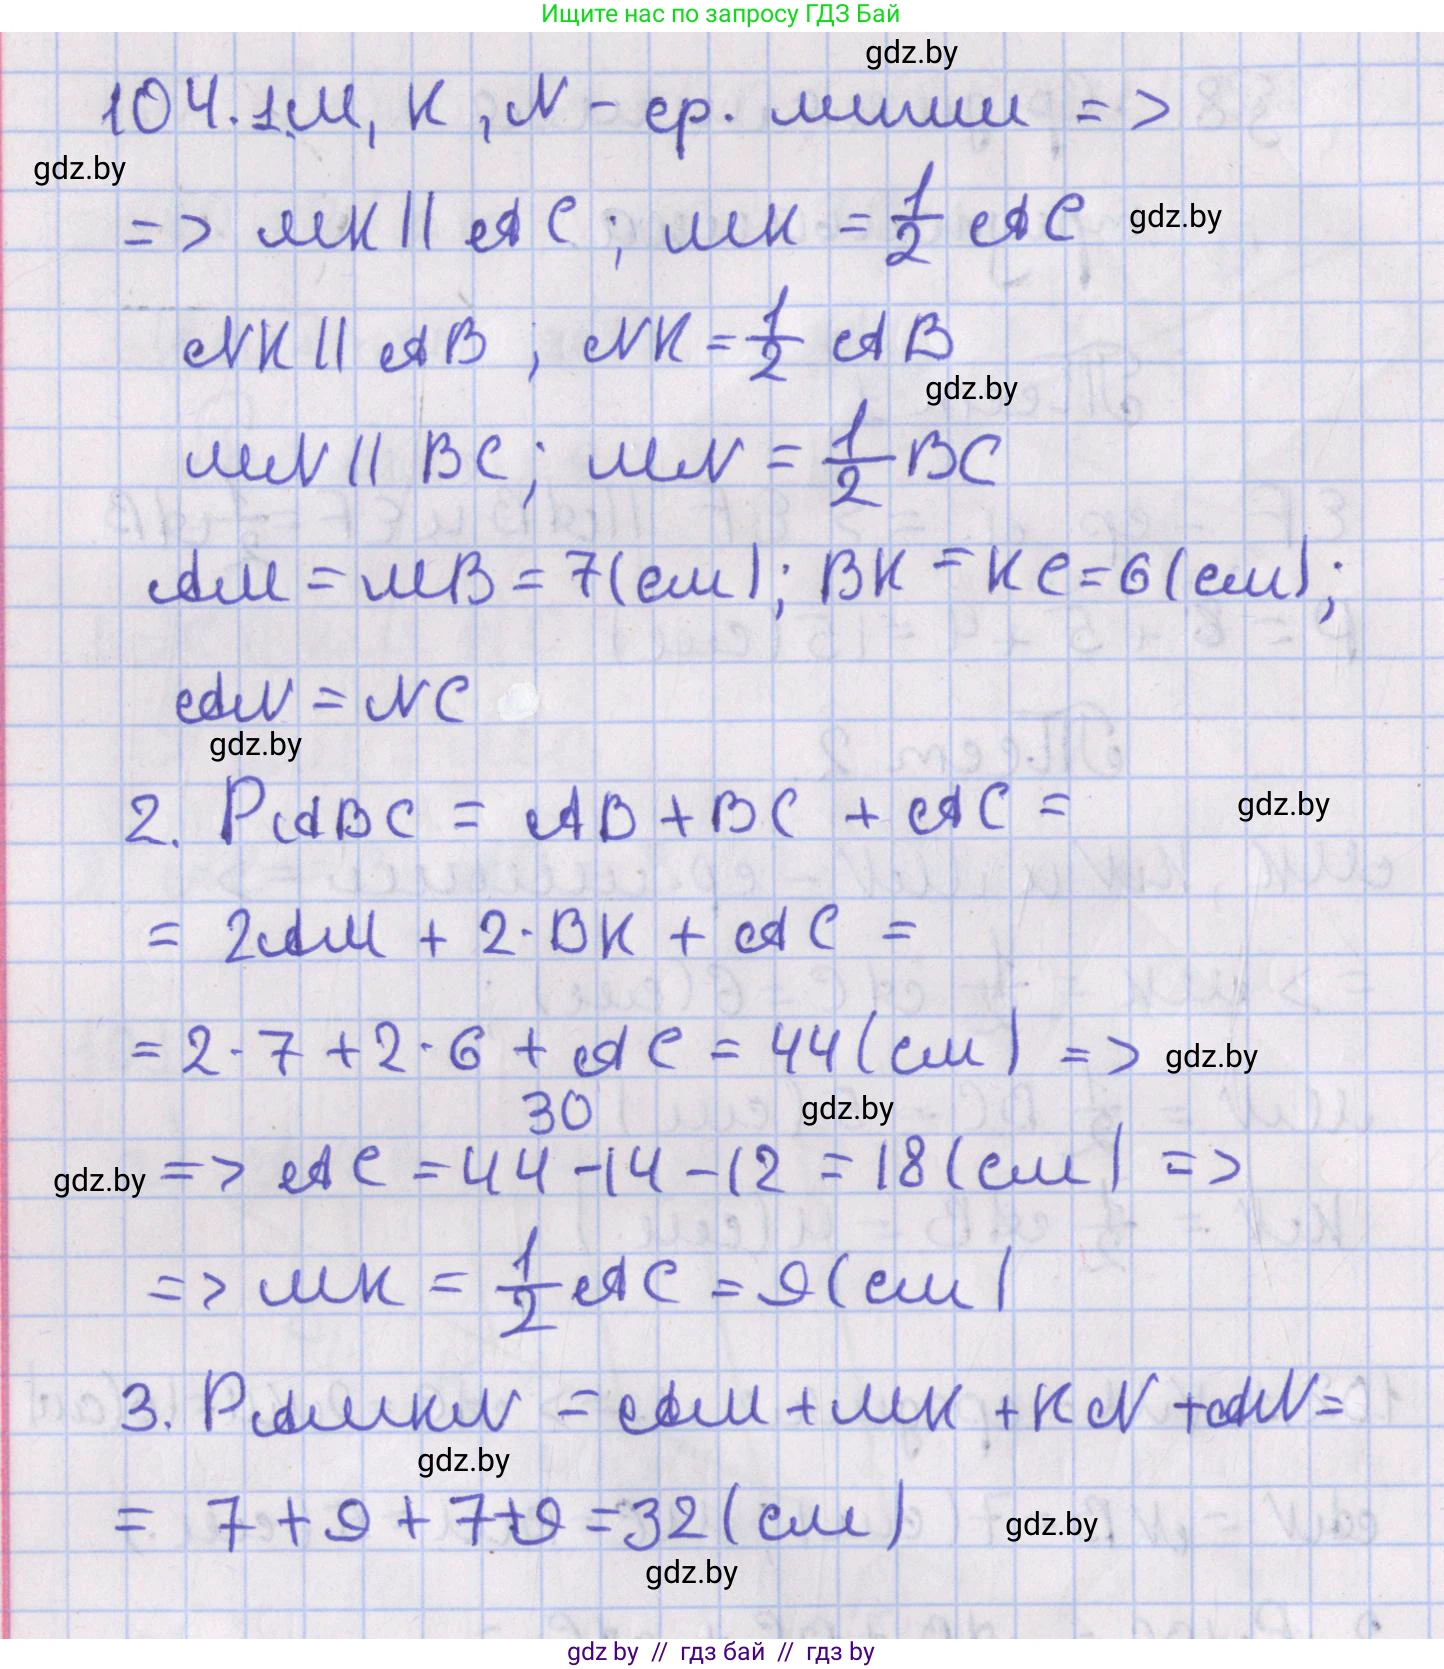 Ищите нас по запросу ГДЗ Бай
gdz.by
104. 1. M, K, N - ср. линии =>
gdz.by
=> MK || AC; MK = 1/2 AC gdz.by
NK || AB; NK = 1/2 AB
gdz.by
MN || BC; MN = 1/2 BC
AM = MB = 7 (см); BK = KC = 6 (см);
AN = NC
gdz.by
2. PABC = AB + BC + AC = gdz.by
= 2AM + 2·BK + AC =
= 2·7 + 2·6 + AC = 44 (см) => gdz.by
30 gdz.by
gdz.by => AC = 44 - 14 - 12 = 18 (см) =>
=> MK = 1/2 AC = 9 (см)
3. PAMKN = AM + MK + KN + AN =
gdz.by
= 7 + 9 + 7 + 9 = 32 (см) gdz.by
gdz.by
gdz by // гдз бай // гдз by